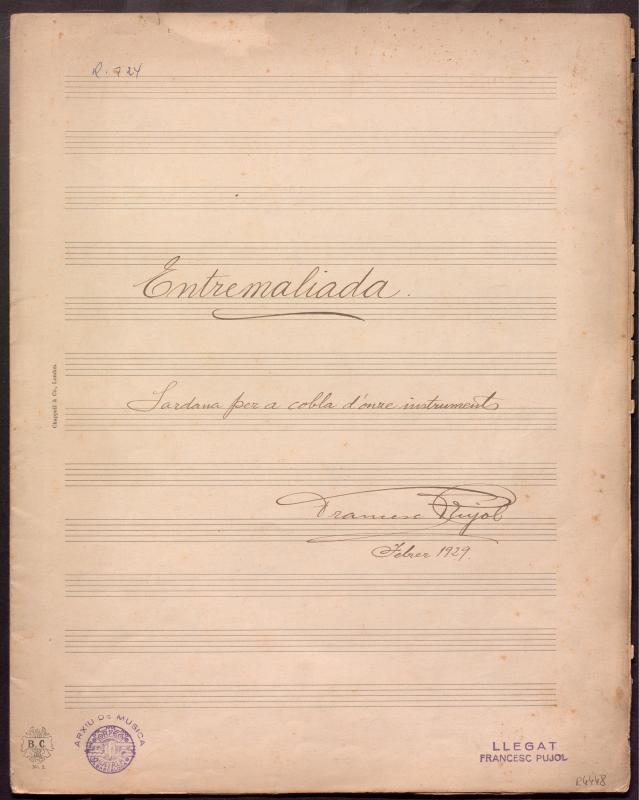 R. 724
Entremaliada.
Sardana per a cobla d'onze instruments
Francesc Pujol
Febrer 1929.
Chappell & Co., London.
B. C.
No. 2.
ARXIU DE MUSICA
LLEGAT
FRANCESC PUJOL
R4448